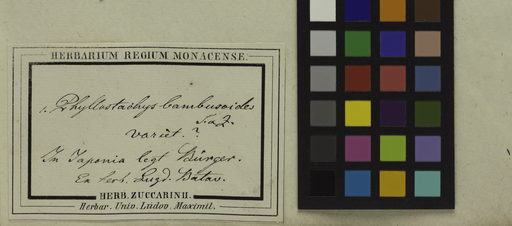 HERBARIUM REGIUM MONACENSE.
1. Phyllostachys bambusoides
S. a Z.
variet. ?
In Japonia legt Bürger.
Ex herb. Lugd. Batav.
HERB. ZUCCARINII.
Herbar. Univ. Ludov. Maximil.